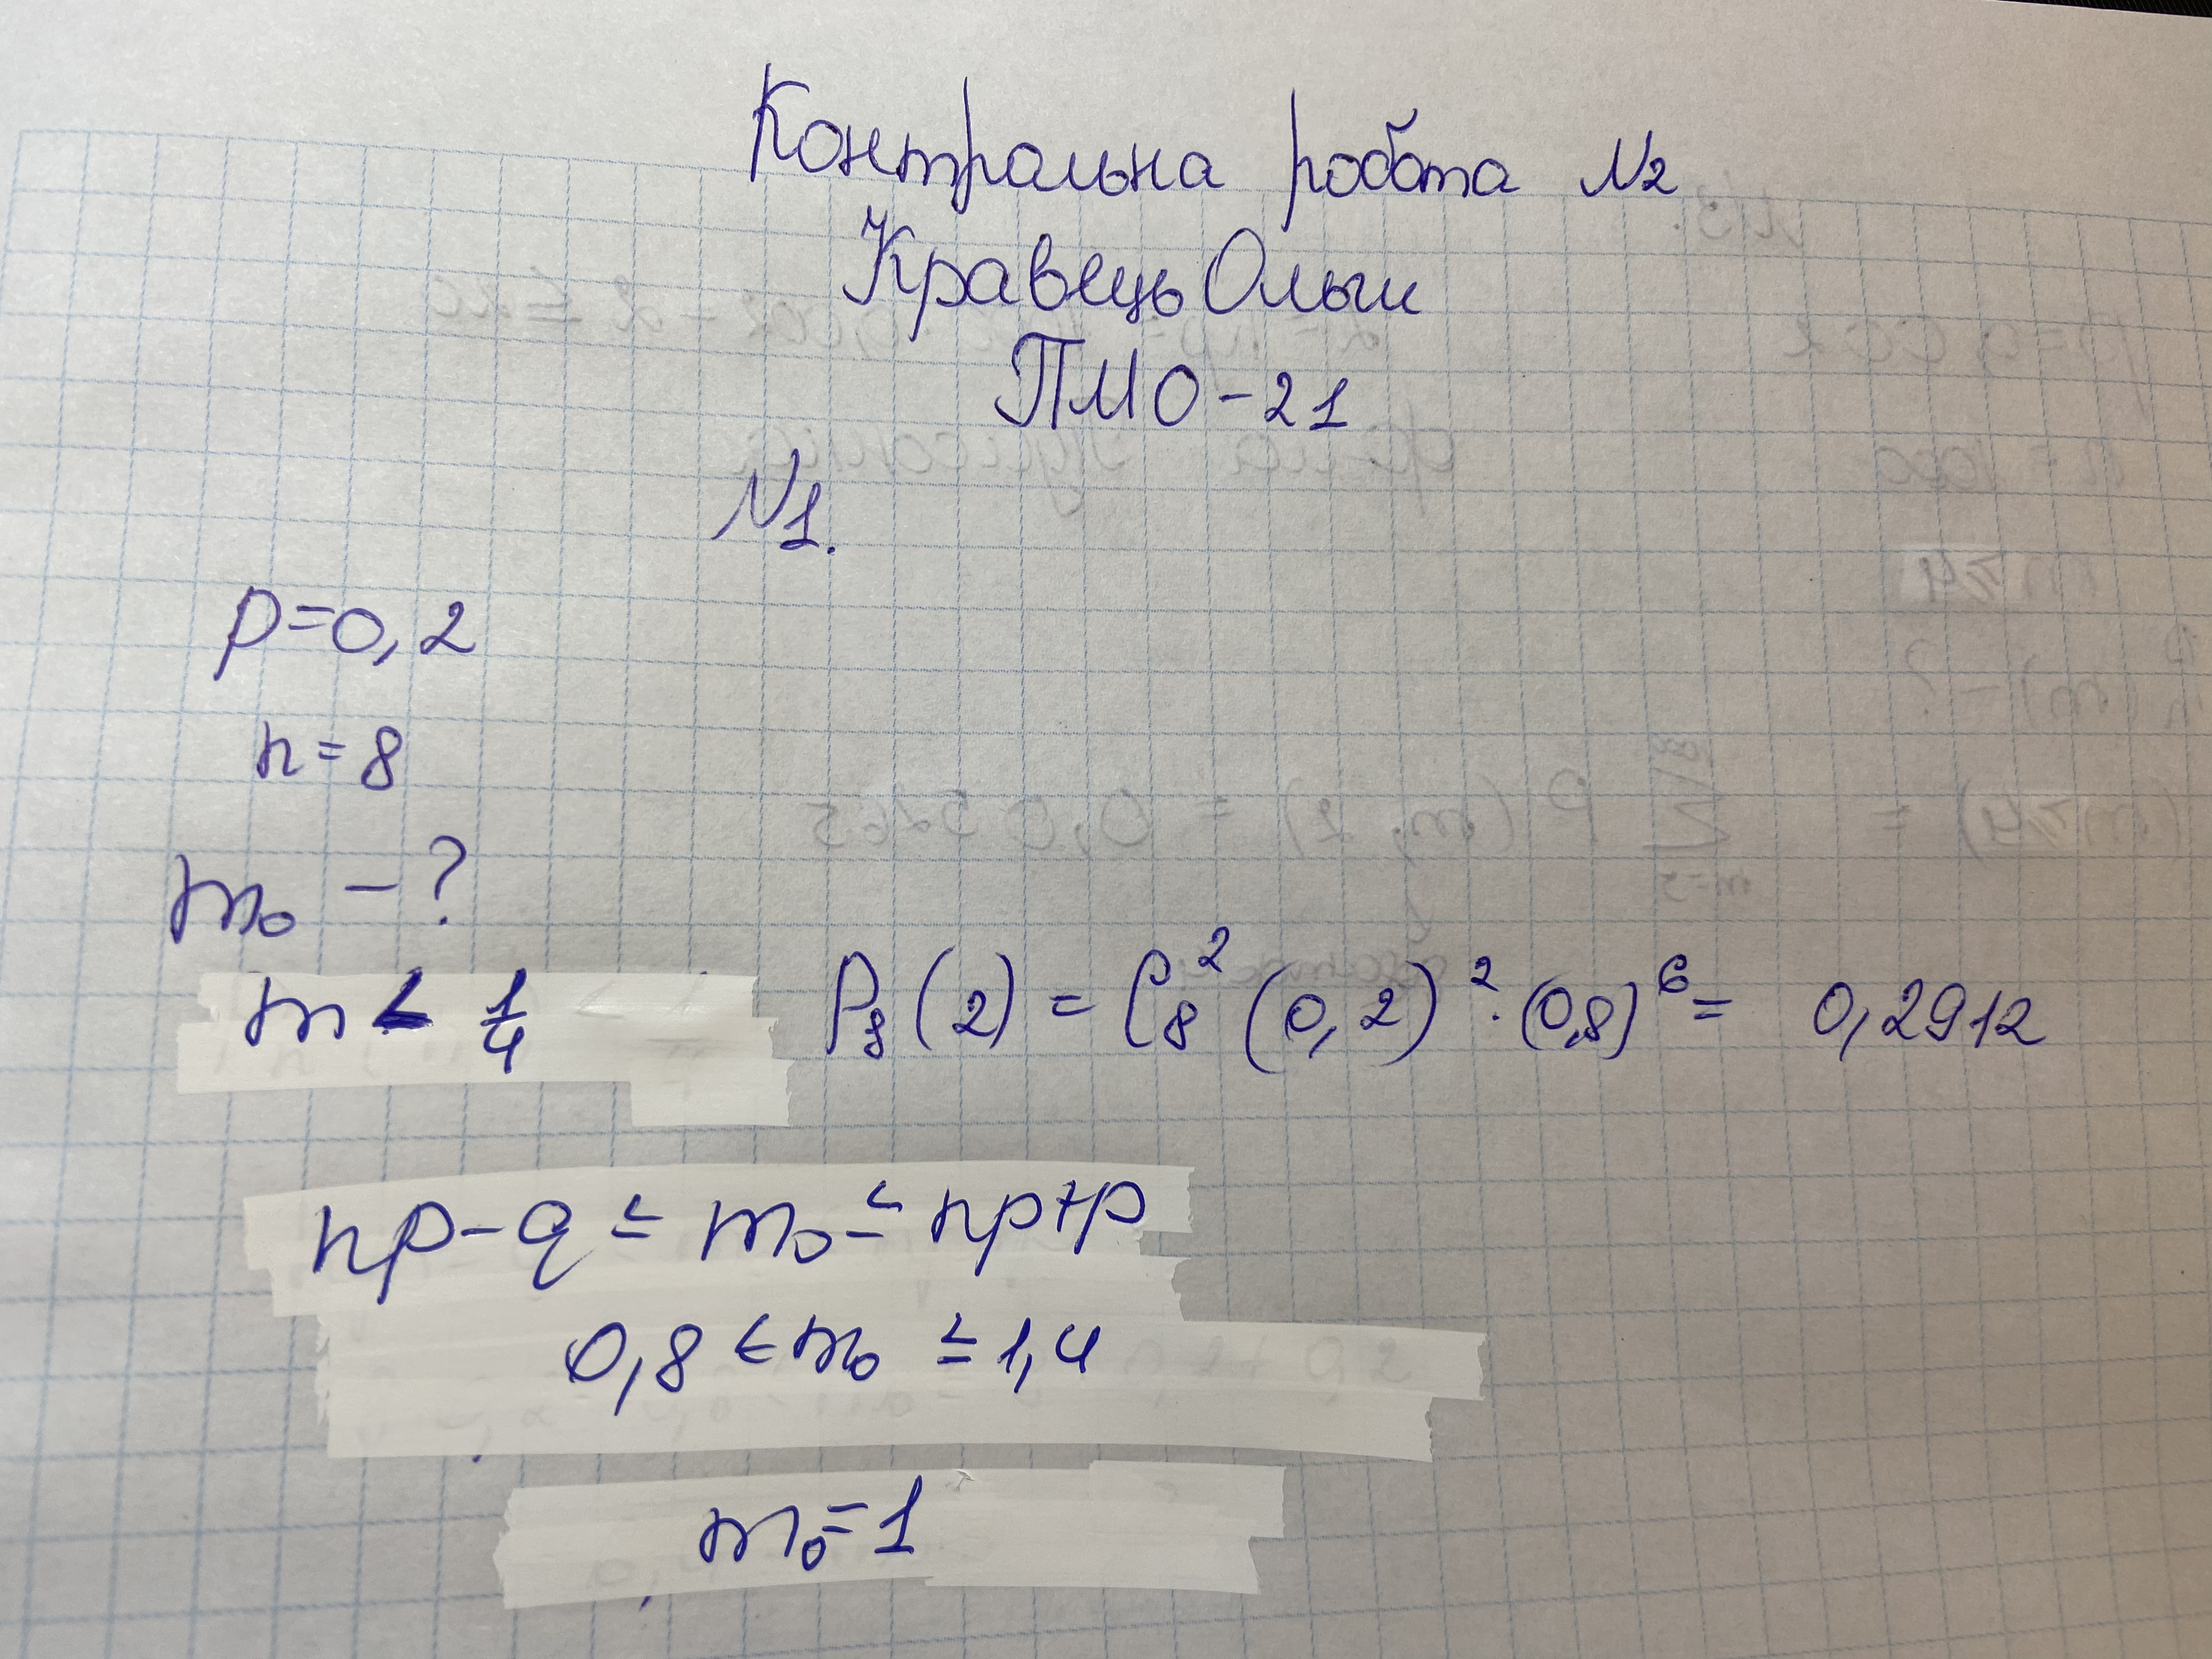 Контрольна робота №2
Кравець Ольги
ПМО-21
№1.
p=0,2
n=8
m₀ - ?
P₈(2) = C₈² (0,2)² · (0,8)⁶ = 0,2912
np-q ≤ m₀ ≤ np+p
0,8 ≤ m₀ ≤ 1,4
m₀=1